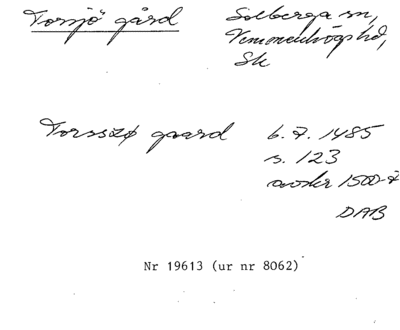 Torsjö gård
Solberga sn,
Vemmenhögs hd,
Sk
Torssiø gaard
b. 7. 1485
s. 123
avskr 1500-t
DAB
Nr 19613 (ur nr 8062)